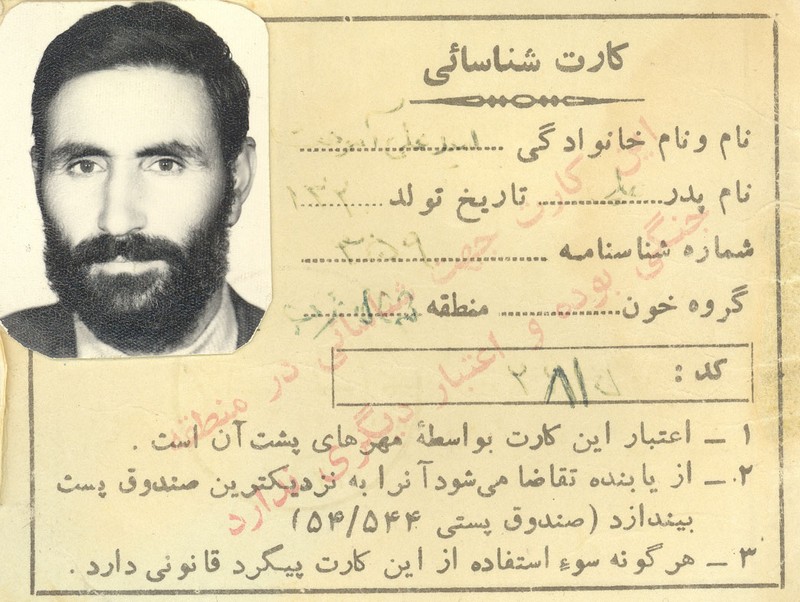 کارت شناسائی
نام و نام خانوادگی
نام پدر تاریخ تولد
شماره شناسنامه
گروه خون منطقه
کد :
۱ ـ اعتبار این کارت بواسطهٔ مهرهای پشت آن است .
۲ ـ از یابنده تقاضا می‌شود آنرا به نزدیکترین صندوق پست
بیندازد (صندوق پستی ۵۴/۵۴۴)
۳ ـ هرگونه سوءِ استفاده از این کارت پیگرد قانونی دارد .
این کارت جهت شناسائی در منطقه
جنگی بوده و اعتبار دیگری ندارد